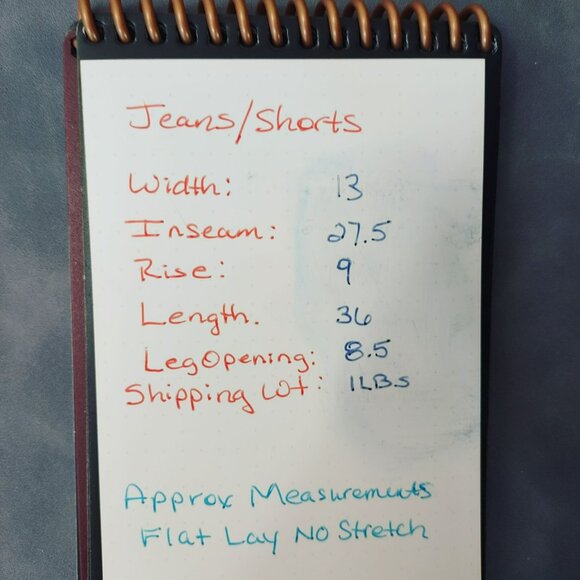 Jeans/Shorts
Width: 13
Inseam: 27.5
Rise: 9
Length. 36
Leg Opening: 8.5
Shipping Wt: 1LBS
Approx Measurements
Flat Lay No Stretch